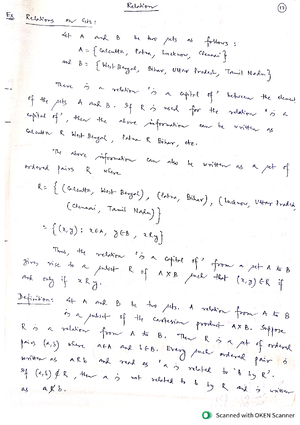 Relation
Ex Relations on Sets:
Let A and B be two sets as follows:
A = {Calcutta, Patna, Lucknow, Chennai}
and B = {West Bengal, Bihar, Uttar Pradesh, Tamil Nadu}
There is a relation 'is a capital of' between the element
of the sets A and B. If R is used for the relation 'is a
capital of', then the above information can be written as
Calcutta R West Bengal, Patna R Bihar, etc.
The above information can also be written as a set of
ordered pairs R where
R = {(Calcutta, West Bengal), (Patna, Bihar), (Lucknow, Uttar Pradesh
(Chennai, Tamil Nadu)}
= {(x,y): x∈A, y∈B, xRy}
Thus, the relation 'is a capital of' from a set A to B
gives rise to a subset R of A×B such that (x,y)∈R if
and only if xRy.
Definition: Let A and B be two sets. A relation from A to B
is a subset of the cartesian product A×B. Suppose
R is a relation from A to B. Then R is a set of ordered
pairs (a,b) where a∈A and b∈B. Every such ordered pair is
written as aRb and read as 'a is related to b by R'.
If (a,b)∉R, then a is not related to b by R and is written
as a R̸ b.
Scanned with OKEN Scanner